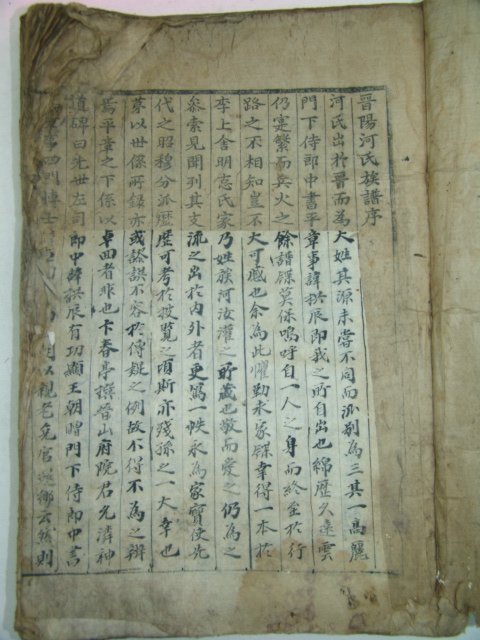 晋陽河氏族譜序
河氏出於晋而為大姓其源未嘗不同而派别為三其一高麗
門下侍郎中書平章事諱拱辰即我之所自出也綿歷久遠雲
仍寔繁而兵火之餘譜牒莫保嗚呼自一人之身而終至於行
路之不相知豈不大可慼也余為此懼勤求家牒幸得一本於
李上舍明志氏家乃姓族河汝灌之貯藏也敬而愛之仍為之
叅索見聞列其支流之出於內外者更寫一帙永為家寶使先
代之昭穆分派歷歷可考於披覽之頃斯亦殘孫之一大幸也
苐以世係所録亦或訛誤不容於傳疑之例故不得不為之辨
焉平章之下係以卓回者非也卞春亭撰晉山府院君先濟神
道碑曰先世左司郎中諱拱辰有功顯王朝贈門下侍郎中書
事四門博士以親老免官還鄉云然則